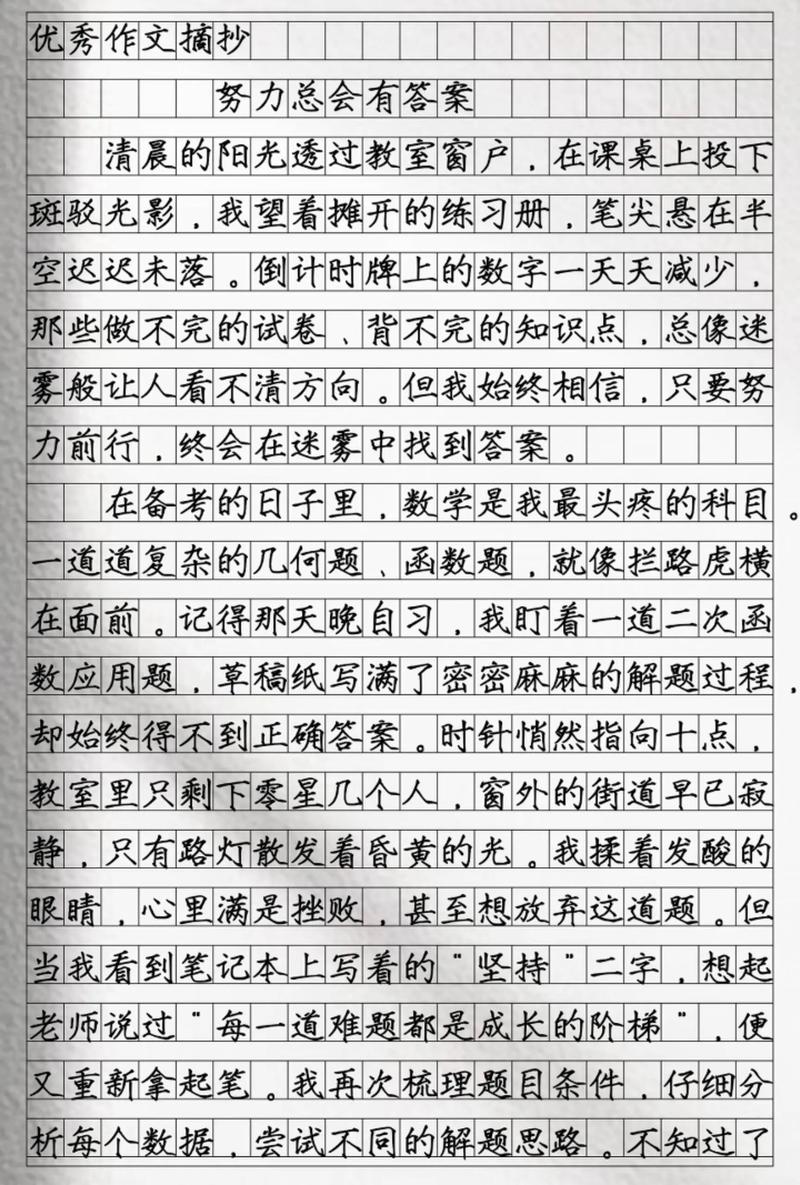 优秀作文摘抄
努力总会有答案
清晨的阳光透过教室窗户，在课桌上投下
斑驳光影，我望着摊开的练习册，笔尖悬在半
空迟迟未落。倒计时牌上的数字一天天减少，
那些做不完的试卷、背不完的知识点，总像迷
雾般让人看不清方向。但我始终相信，只要努
力前行，终会在迷雾中找到答案。
在备考的日子里，数学是我最头疼的科目。
一道道复杂的几何题、函数题，就像拦路虎横
在面前。记得那天晚自习，我盯着一道二次函
数应用题，草稿纸写满了密密麻麻的解题过程，
却始终得不到正确答案。时针悄然指向十点，
教室里只剩下零星几个人，窗外的街道早已寂
静，只有路灯散发着昏黄的光。我揉着发酸的
眼睛，心里满是挫败，甚至想放弃这道题。但
当我看到笔记本上写着的"坚持"二字，想起
老师说过"每一道难题都是成长的阶梯"，便
又重新拿起笔。我再次梳理题目条件，仔细分
析每个数据，尝试不同的解题思路。不知过了